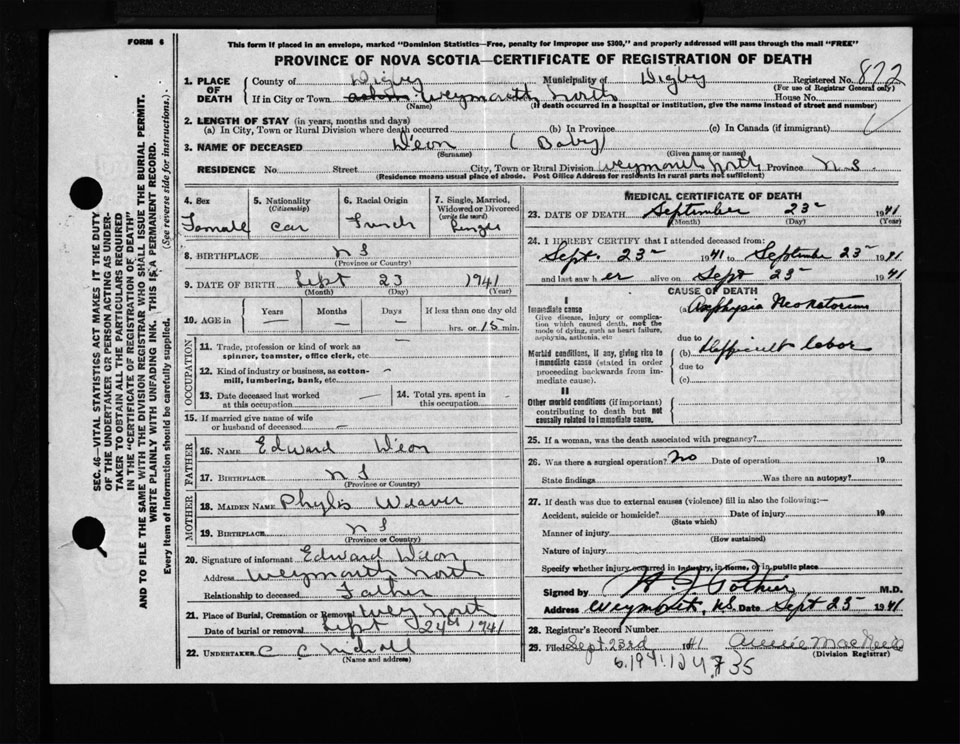 FORM 6
This form if placed in an envelope, marked "Dominion Statistics—Free, penalty for improper use $300," and properly addressed will pass through the mail "FREE"
PROVINCE OF NOVA SCOTIA—CERTIFICATE OF REGISTRATION OF DEATH
SEC. 46—VITAL STATISTICS ACT MAKES IT THE DUTY
OF THE UNDERTAKER OR PERSON ACTING AS UNDER-
TAKER TO OBTAIN ALL THE PARTICULARS REQUIRED
IN THE "CERTIFICATE OF REGISTRATION OF DEATH"
AND TO FILE THE SAME WITH THE DIVISION REGISTRAR WHO SHALL ISSUE THE BURIAL PERMIT.
WRITE PLAINLY WITH UNFADING INK. THIS IS A PERMANENT RECORD.
Every item of information should be carefully supplied. (See reverse side for instructions.)
1. PLACE OF DEATH
County of Digby Municipality of Digby Registered No. 872
(For use of Registrar General only)
If in City or Town Weymouth North House No.
(Name) (If death occurred in a hospital or institution, give the name instead of street and number)
2. LENGTH OF STAY (in years, months and days)
(a) In City, Town or Rural Division where death occurred (b) In Province (c) In Canada (if immigrant)
3. NAME OF DECEASED D'eon (Baby)
(Surname) (Given name or names)
RESIDENCE No. Street City, Town or Rural Division Weymouth North Province N.S.
(Residence means usual place of abode. Post Office Address for residents in rural parts not sufficient)
4. Sex
Female
5. Nationality
(Citizenship)
Can
6. Racial Origin
French
7. Single, Married,
Widowed or Divorced
(write the word)
Single
8. BIRTHPLACE N S
(Province or Country)
9. DATE OF BIRTH Sept 23 1941
(Month) (Day) (Year)
10. AGE in
Years Months Days If less than one day old
hrs. or 15 min.
OCCUPATION
11. Trade, profession or kind of work as
spinner, teamster, office clerk, etc.
12. Kind of industry or business, as cotton-
mill, lumbering, bank, etc.
13. Date deceased last worked
at this occupation
14. Total yrs. spent in
this occupation
15. If married give name of wife
or husband of deceased
FATHER
16. NAME Edward D'eon
17. BIRTHPLACE N S
(Province or Country)
MOTHER
18. MAIDEN NAME Phylis Weaver
19. BIRTHPLACE N S
(Province or Country)
20. Signature of informant Edward D'eon
Address Weymouth North
Relationship to deceased Father
21. Place of Burial, Cremation or Removal Wey North
Date of burial or removal Sept 24th 1941
22. UNDERTAKER C C
(Name and address)
MEDICAL CERTIFICATE OF DEATH
23. DATE OF DEATH September 23 1941
(Month) (Day) (Year)
24. I HEREBY CERTIFY that I attended deceased from:
Sept. 23 1941 to September 23 1941
and last saw her alive on Sept 23 1941
CAUSE OF DEATH
I
Immediate cause
Give disease, injury or complica-
tion which caused death, not the
mode of dying, such as heart failure,
asphyxia, asthenia, etc
(a) Asphyxia Neonatorum
due to
Morbid conditions, if any, giving rise to
immediate cause (stated in order
proceeding backwards from im-
mediate cause).
(b) Difficult labor
due to
(c)
II
Other morbid conditions (if important)
contributing to death but not
causally related to immediate cause.
25. If a woman, was the death associated with pregnancy?
26. Was there a surgical operation? No Date of operation 19
State findings Was there an autopsy?
27. If death was due to external causes (violence) fill in also the following:—
Accident, suicide or homicide? Date of injury 19
(State which)
Manner of injury
(How sustained)
Nature of injury
Specify whether injury occurred in industry, in home, or in public place
Signed by Pothier M.D.
Address Weymouth, N.S. Date Sept 23 1941
28. Registrar's Record Number
29. Filed Sept. 23rd 1941 Annie
(Division Registrar)